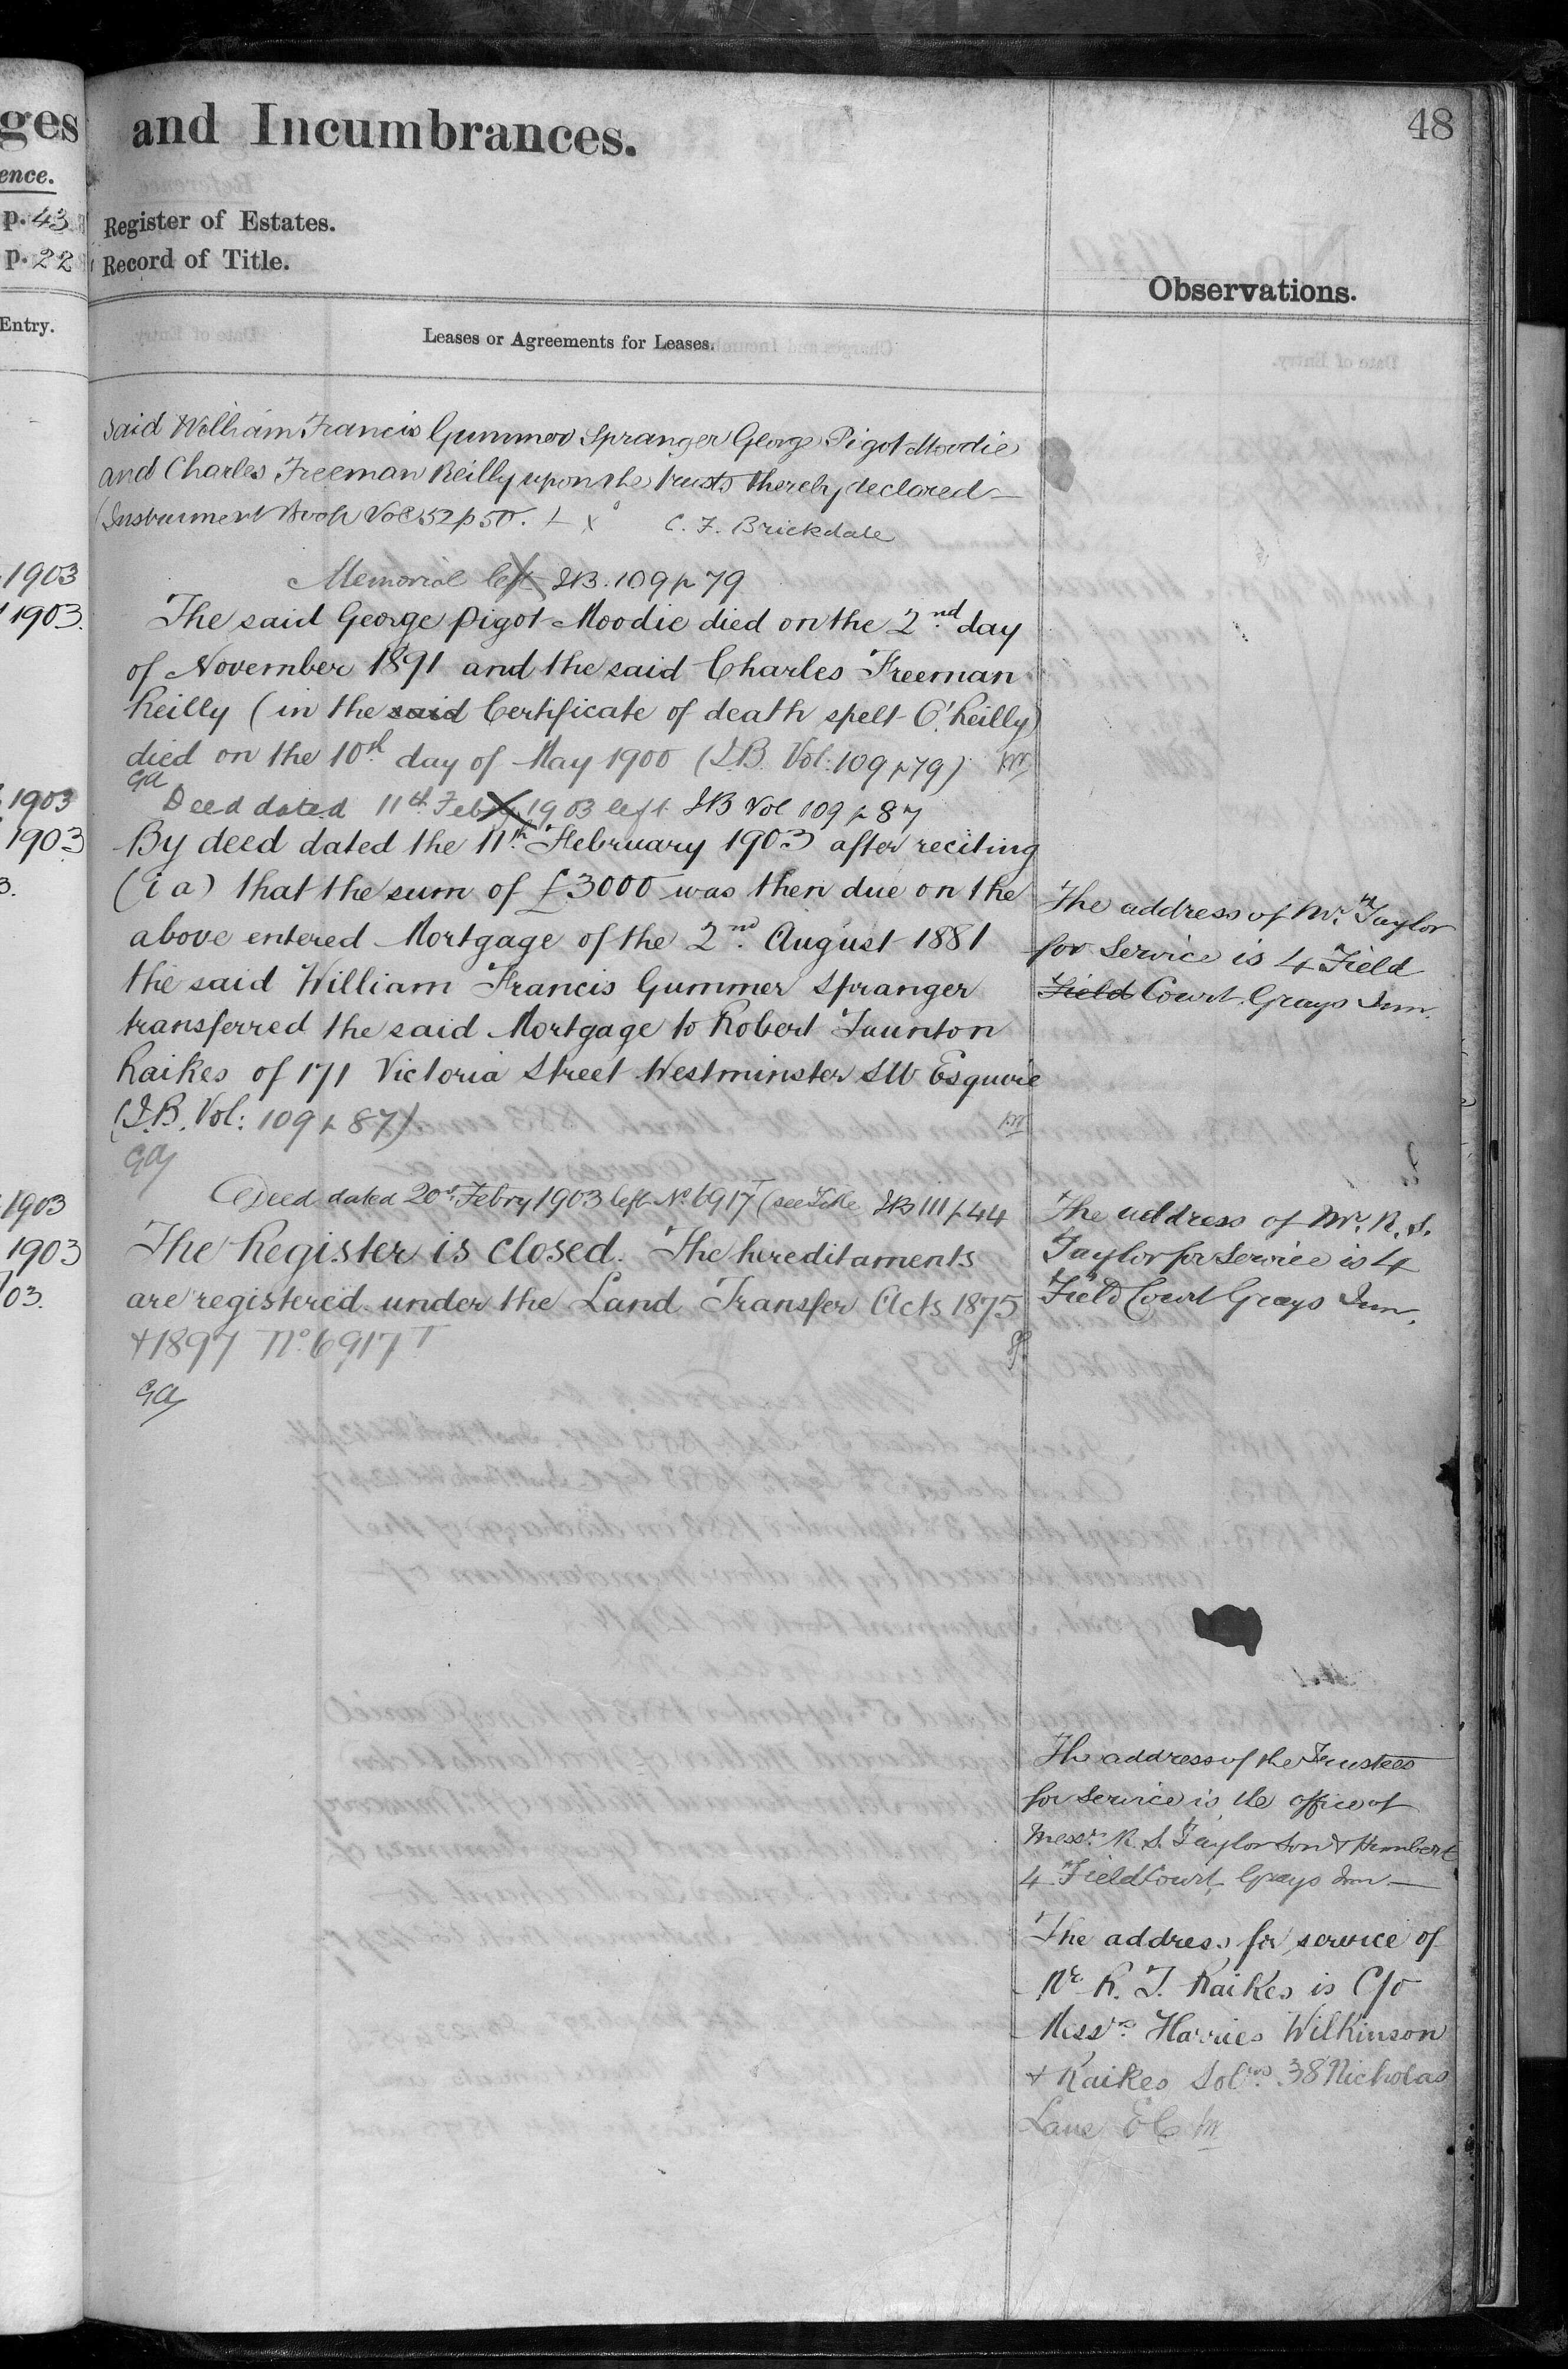 ges
ence.
p. 43
p. 22
Entry.
1903
1903.
1903
1903
3.
1903
1903
03.
and Incumbrances.
48
Register of Estates.
Record of Title.
Observations.
Leases or Agreements for Leases.
said William Francis Gummer Spranger George Pigot Moodie
and Charles Freeman Reilly upon the trusts thereby declared —
(Instrument Book Vol 52 p 50.
C. F. Brickdale
Memorial left IB. 109 p 79
The said George Pigot Moodie died on the 2nd day
of November 1891 and the said Charles Freeman
Reilly (in the said Certificate of death spelt O'Reilly)
died on the 10th day of May 1900 (I.B. Vol: 109 p 79)
GA
Deed dated 11th Feby 1903 left IB Vol 109 p 87
By deed dated the 11th February 1903 after reciting
(i a) that the sum of £3000 was then due on the
above entered Mortgage of the 2nd August 1881
the said William Francis Gummer Spranger
transferred the said Mortgage to Robert Taunton
Raikes of 171 Victoria Street Westminster SW Esquire
(I.B. Vol: 109 p 87)
GA
Deed dated 20th Febry 1903 left No 6917T (see Title IB 111 p 44
The Register is closed. The hereditaments
are registered under the Land Transfer Acts 1875
+ 1897 No 6917 T
GA
The address of Mr Taylor
for Service is 4 Field
Field Court Grays Inn.
The address of Mr. R. S.
Taylor for Service is 4
Field Court Grays Inn.
The address of the Trustees
for service is the office of
Messrs R. S. Taylor Son & Humbert
4 Field Court Grays Inn —
The address for service of
Mr R. T. Raikes is C/o
Messrs. Harries Wilkinson
+ Raikes Solrs. 38 Nicholas
Lane EC